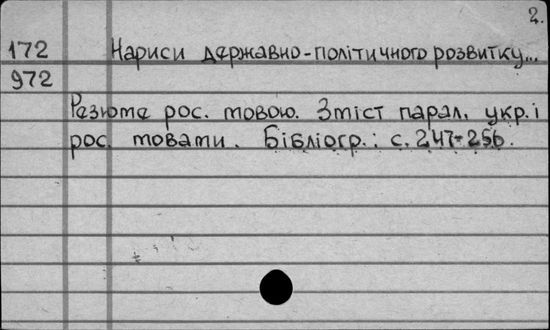 2.
172 Нариси державно-політичного розвитку...
972
Резюме рос. мовою. Зміст парал. укр. і
рос. мовами. Бібліогр.: с. 247-256.